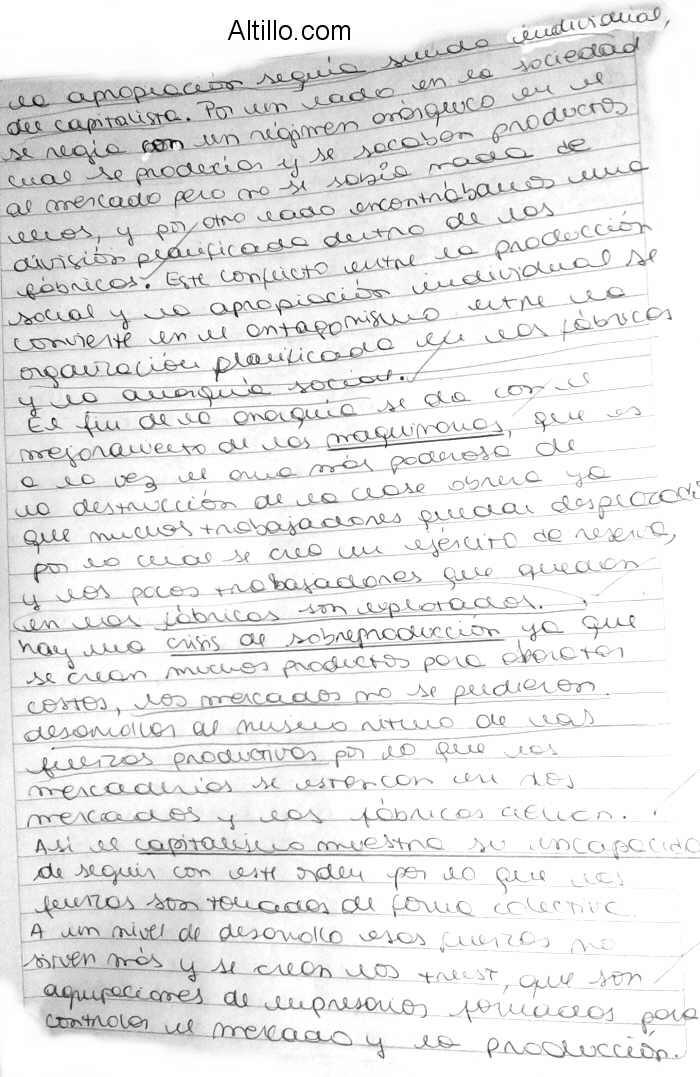 Altillo.com
la apropiación seguía siendo individual,
del capitalista. Por un lado en la sociedad
se regía con un régimen anárquico en el
cual se producía y se sacaban productos
al mercado pero no se sabía nada de
ellos, y por otro lado encontrábamos una
división planificada dentro de las
fábricas. Este conflicto entre la producción
social y la apropiación individual se
convierte en el antagonismo entre la
organización planificada en las fábricas
y la anarquía social.
El fin de la anarquía se da con el
mejoramiento de las maquinarias, que es
a la vez el arma más poderosa de
la destrucción de la clase obrera ya
que muchos trabajadores quedan desplazados
por lo cual se crea un ejército de reserva,
y los pocos trabajadores que quedan
en las fábricas son explotados.
hay una crisis de sobreproducción ya que
se crean muchos productos para abaratar
costos, los mercados no se pudieron
desarrollar al mismo ritmo de las
fuerzas productivas por lo que las
mercaderías se estancan en los
mercados y las fábricas cierran.
Así el capitalismo muestra su incapacidad
de seguir con este orden por lo que las
fuerzas son tomadas de forma colectiva.
A un nivel de desarrollo esas fuerzas no
sirven más y se crean los trust, que son
agrupaciones de empresarios formados para
controlar el mercado y la producción.